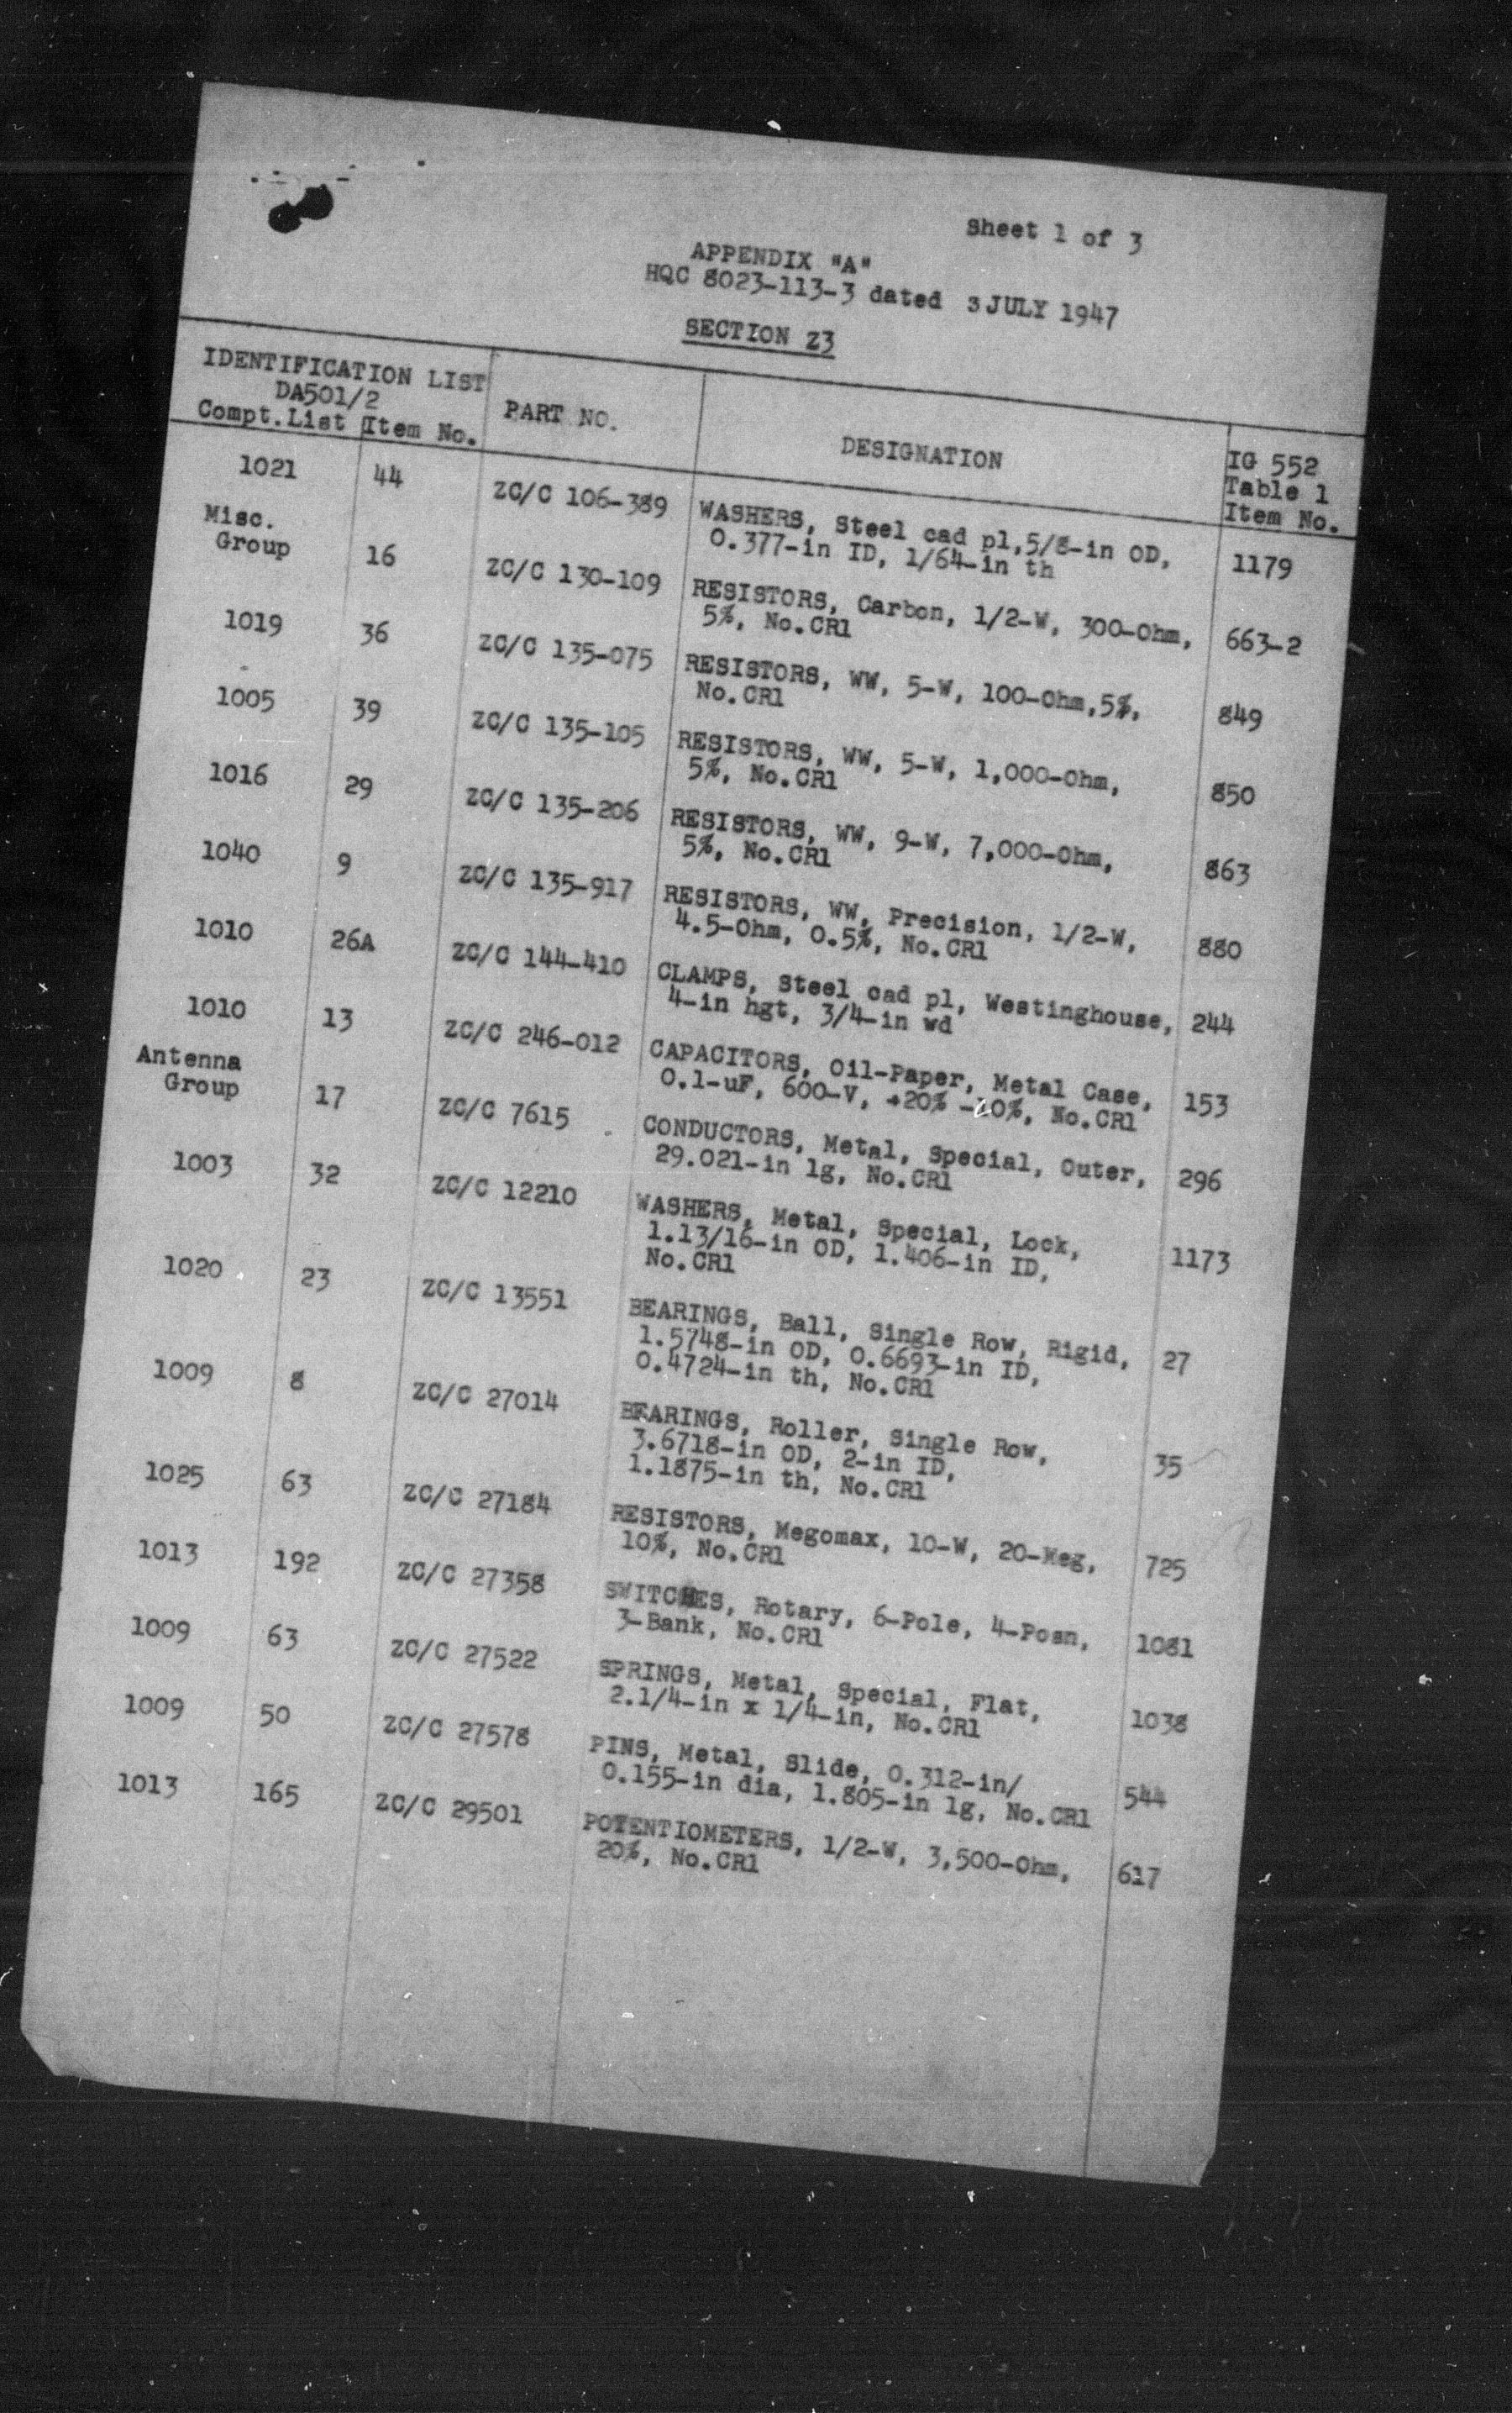 Sheet 1 of 3
APPENDIX "A"
HQC 8023-113-3 dated 3 JULY 1947
SECTION Z3
IDENTIFICATION LIST
DA501/2
Compt.List Item No.
PART NO.
DESIGNATION
IG 552
Table 1
Item No.
1021 44 ZC/C 106-389 WASHERS, Steel cad pl,5/8-in OD,
0.377-in ID, 1/64-in th 1179
Misc.
Group 16 ZC/C 130-109 RESISTORS, Carbon, 1/2-W, 300-Ohm,
5%, No.CR1 663-2
1019 36 ZC/C 135-075 RESISTORS, WW, 5-W, 100-Ohm,5%,
No.CR1 849
1005 39 ZC/C 135-105 RESISTORS, WW, 5-W, 1,000-Ohm,
5%, No.CR1 850
1016 29 ZC/C 135-206 RESISTORS, WW, 9-W, 7,000-Ohm,
5%, No.CR1 863
1040 9 ZC/C 135-917 RESISTORS, WW, Precision, 1/2-W,
4.5-Ohm, 0.5%, No.CR1 880
1010 26A ZC/C 144-410 CLAMPS, Steel cad pl, Westinghouse,
4-in hgt, 3/4-in wd 244
1010 13 ZC/C 246-012 CAPACITORS, Oil-Paper, Metal Case,
0.1-uF, 600-V, +20% -10%, No.CR1 153
Antenna
Group 17 ZC/C 7615 CONDUCTORS, Metal, Special, Outer,
29.021-in lg, No.CR1 296
1003 32 ZC/C 12210 WASHERS, Metal, Special, Lock,
1.13/16-in OD, 1.406-in ID,
No.CR1 1173
1020 23 ZC/C 13551 BEARINGS, Ball, Single Row, Rigid,
1.5748-in OD, 0.6693-in ID,
0.4724-in th, No.CR1 27
1009 8 ZC/C 27014 BEARINGS, Roller, Single Row,
3.6718-in OD, 2-in ID,
1.1875-in th, No.CR1 35
1025 63 ZC/C 27184 RESISTORS, Megomax, 10-W, 20-Meg,
10%, No.CR1 725
1013 192 ZC/C 27358 SWITCHES, Rotary, 6-Pole, 4-Posn,
3-Bank, No.CR1 1081
1009 63 ZC/C 27522 SPRINGS, Metal, Special, Flat,
2.1/4-in x 1/4-in, No.CR1 1038
1009 50 ZC/C 27578 PINS, Metal, Slide, 0.312-in/
0.155-in dia, 1.805-in lg, No.CR1 544
1013 165 ZC/C 29501 POTENTIOMETERS, 1/2-W, 3,500-Ohm,
20%, No.CR1 617